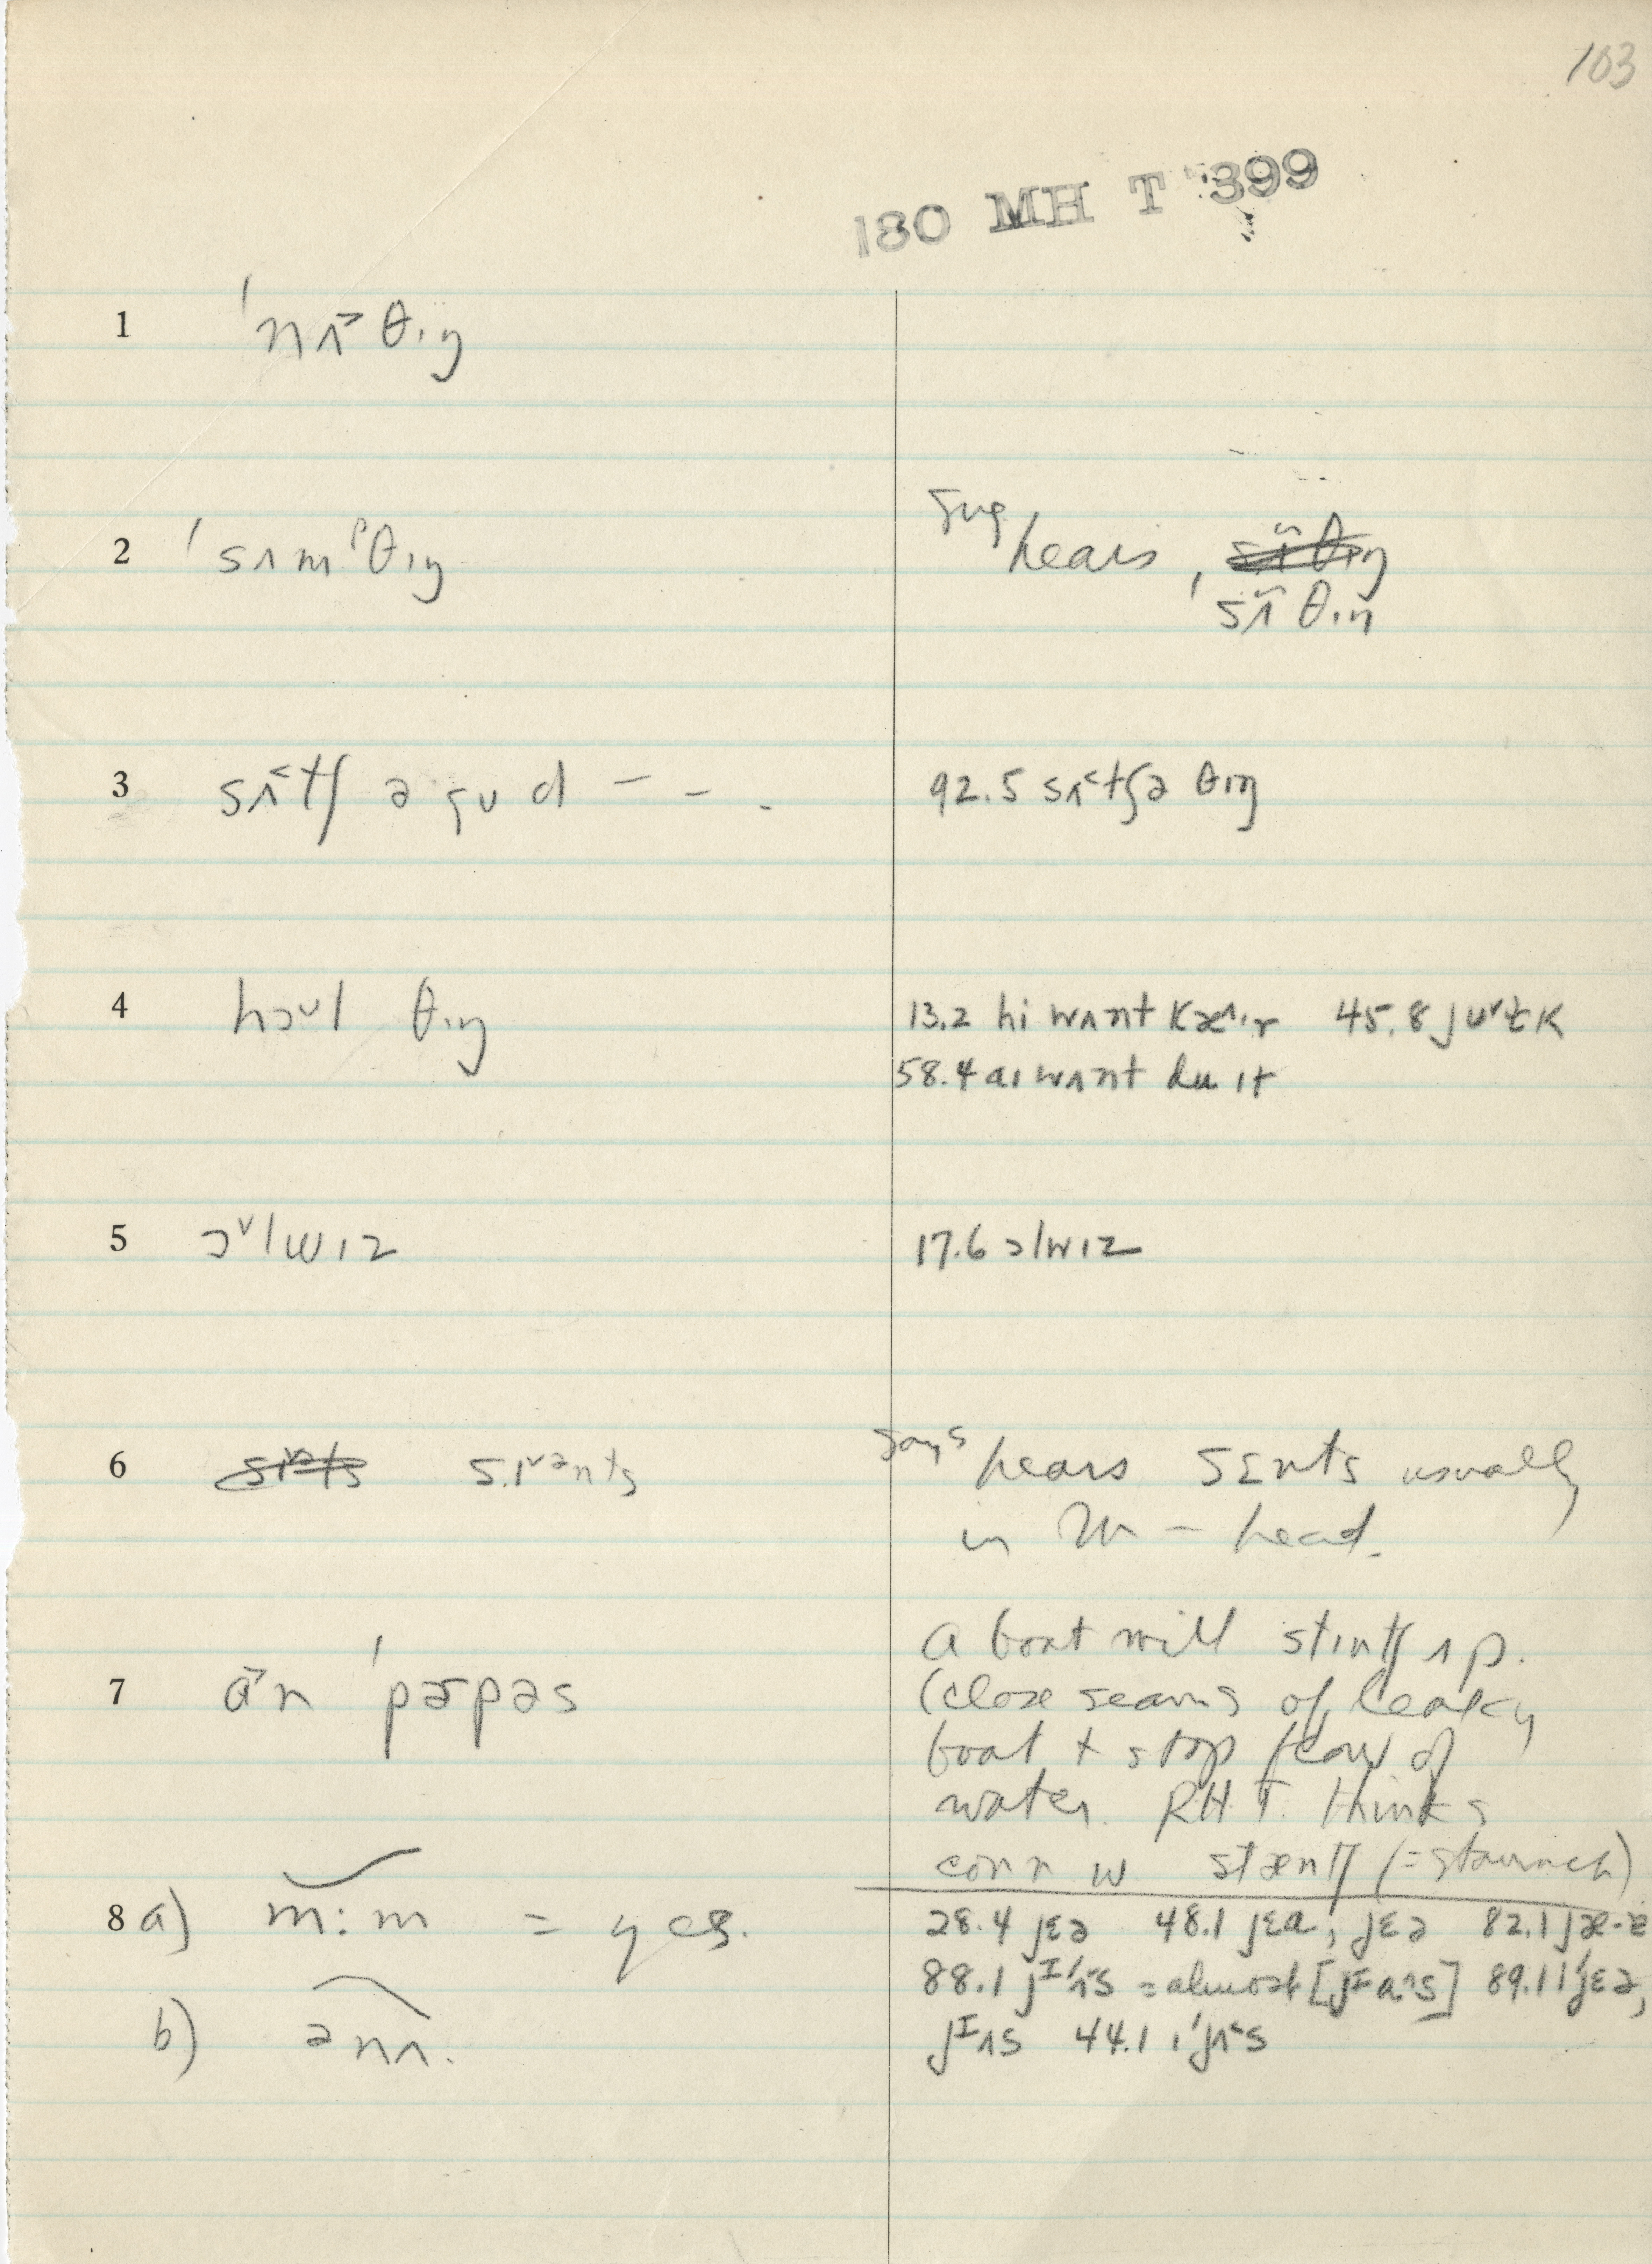 103
180 MH T 399
1 ˈnʌ˃θɪŋ
2 ˈsʌmᵖθɪŋ
hears ˈsʌ̃θɪŋ
3 sʌ˂tʃ ə gud - - -
92.5 sʌ˂tʃə θɪŋ
4 hɔᵛl θɪŋ
13.2 hi wʌnt kæ^ɪɤ 45.8 juᵛ
58.4 aɪ wʌnt du ɪt
5 ɔᵛlwɪz
17.6 ɔlwɪz
6 sɪᵛᵊnts
hears sɛnts usually
in M - head.
7 ɑ˃n ˈpɚpəs
A boat will stɪntʃ ʌp.
(close seams of leaky
boat + stop flow of
water. RHT. thinks
conn w. stæntʃ (=staunch)
8 a) m:m = yes.
28.4 jɛə 48.1 jɛa, jɛə 82.1
88.1 jᴵˈʌs = almost [jᴵa^s] 89.1 ˈjɛə,
jᴵʌs 44.1 ɪˈjʌ˂s
b) ənʌ.